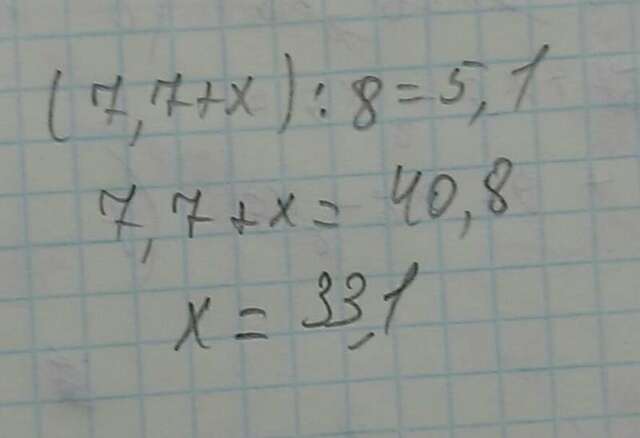 (7,7+x):8=5,1
7,7+x=40,8
x=33,1